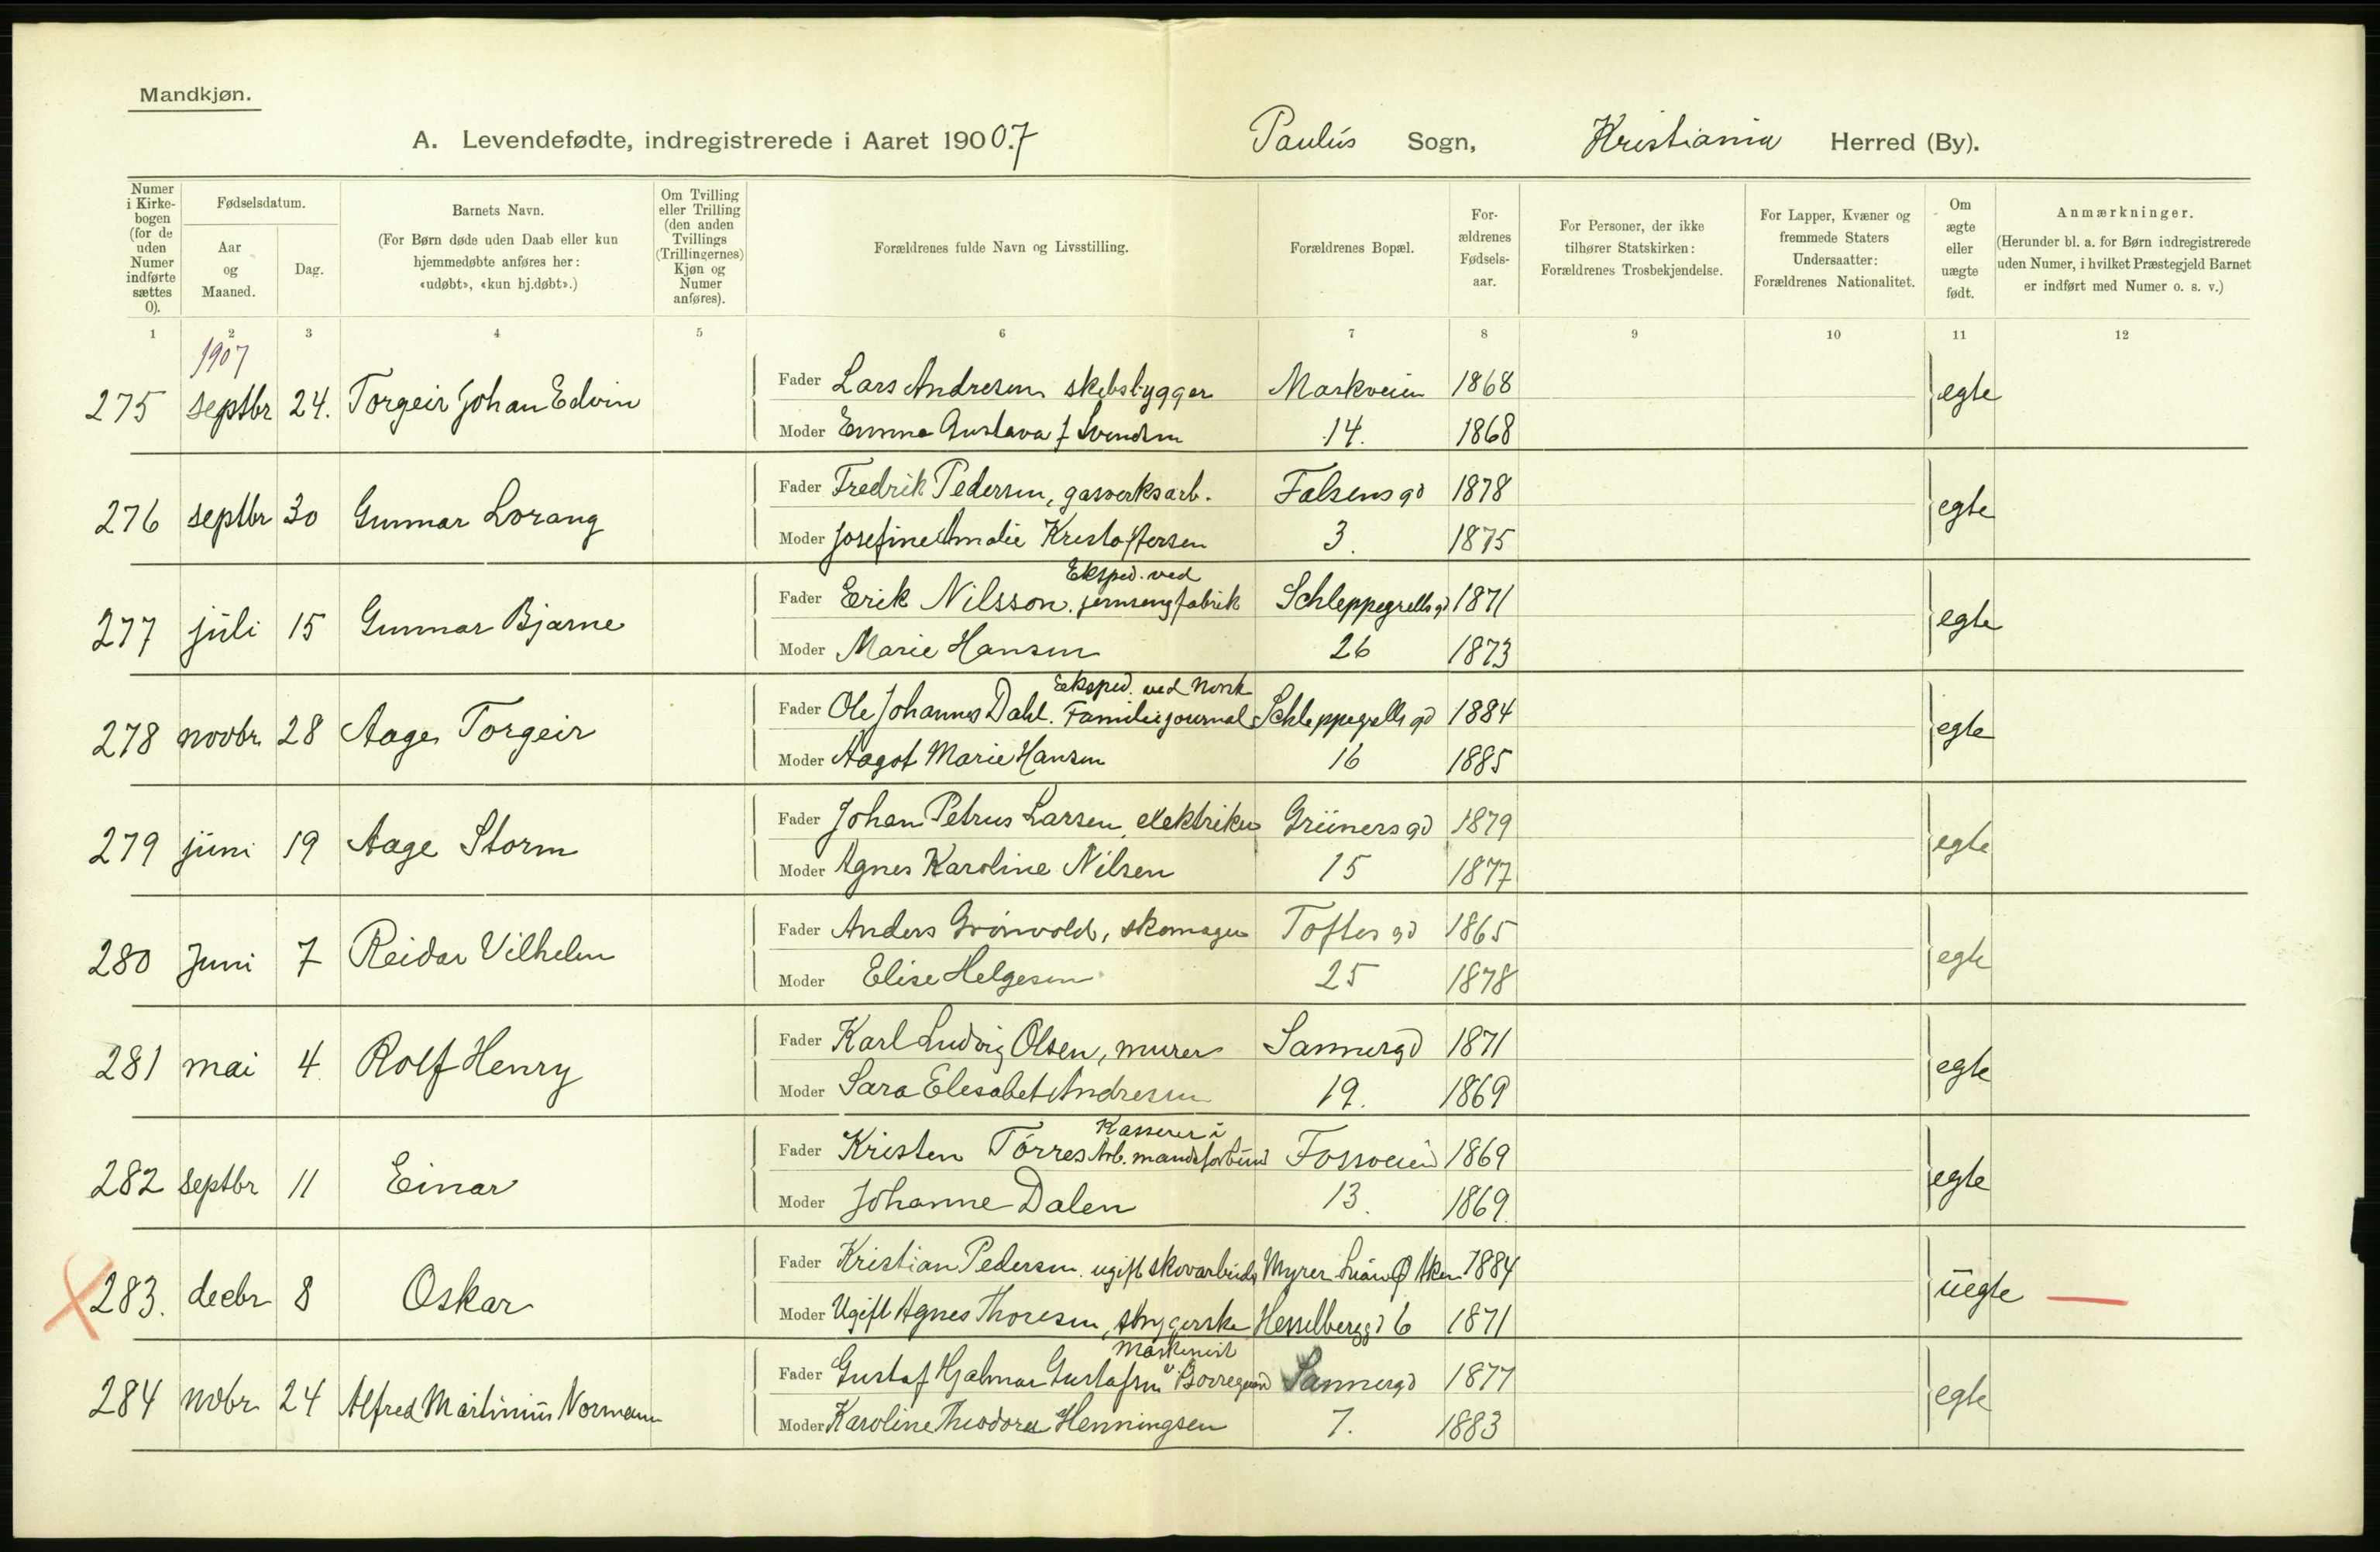 Mandkjøn.
A. Levendefødte, indregistrerede i Aaret 1900.7 Paulus Sogn, Kristiania Herred (By).
Numer i Kirkebogen (for de uden Numer indførte sættes 0).
Fødselsdatum.
Aar og Maaned.
Dag.
Barnets Navn.
(For Børn døde uden Daab eller kun hjemmedøbte anføres her: «udøbt», «kun hj.døbt».)
Om Tvilling eller Trilling (den anden Tvillings (Trillingernes) Kjøn og Numer anføres).
Forældrenes fulde Navn og Livsstilling.
Forældrenes Bopæl.
Forældrenes Fødselsaar.
For Personer, der ikke tilhører Statskirken: Forældrenes Trosbekjendelse.
For Lapper, Kvæner og fremmede Staters Undersaatter: Forældrenes Nationalitet.
Om ægte eller uægte født.
Anmærkninger.
(Herunder bl. a. for Børn indregistrerede uden Numer, i hvilket Præstegjeld Barnet er indført med Numer o. s. v.)
1 2 3 4 5 6 7 8 9 10 11 12
1907
275 septbr 24. Torgeir Johan Edvin Fader Lars Andresen skibsbygger Markveien 1868 egte
Moder Emma Gustava f Svendsen 14. 1868
276 septbr 30 Gunnar Lorang Fader Fredrik Pedersen, gasverksarb. Falsens gd 1878 egte
Moder Josefine Amalie Kristoffersen 3. 1875
Eksped. ved
277 juli 15 Gunnar Bjarne Fader Erik Nilsson. jernsengfabrik Schleppegrells gd 1871 egte
Moder Marie Hansen 26 1873
Eksped. ved Norsk
278 novbr 28 Aage Torgeir Fader Ole Johannes Dahl. Familiejournal Schleppegrells gd 1884 egte
Moder Aagot Marie Hansen 16 1885
279 juni 19 Aage Storm Fader Johan Petrus Larsen, elektriker Grüners gd 1879 egte
Moder Agnes Karoline Nilsen 15 1877
280 Juni 7 Reidar Vilhelm Fader Anders Grönvold, skomager Toftes gd 1865 egte
Moder Elise Helgesen 25 1878
281 mai 4 Rolf Henry Fader Karl Ludvig Olsen, murer Sannergd 1871 egte
Moder Sara Elesabet Andresen 19. 1869
Kasserer i
282 septbr 11 Einar Fader Kristen Tørres Arb. mandsforbund Fossveien 1869 egte
Moder Johanne Dalen 13. 1869.
283. decbr 8 Oskar Fader Kristian Pedersen. ugift skovarbeider Myrer Aker 1884 uegte —
Moder Ugift Agnes Thoresen, strygerske Hesselbergsgd 6 1871
Maskinist
284 novbr 24 Alfred Martinius Normann Fader Gustaf Hjalmar Gustafsen v. Borregaard Sannergd 1877 egte
Moder Karoline Theodora Henningsen 7. 1883